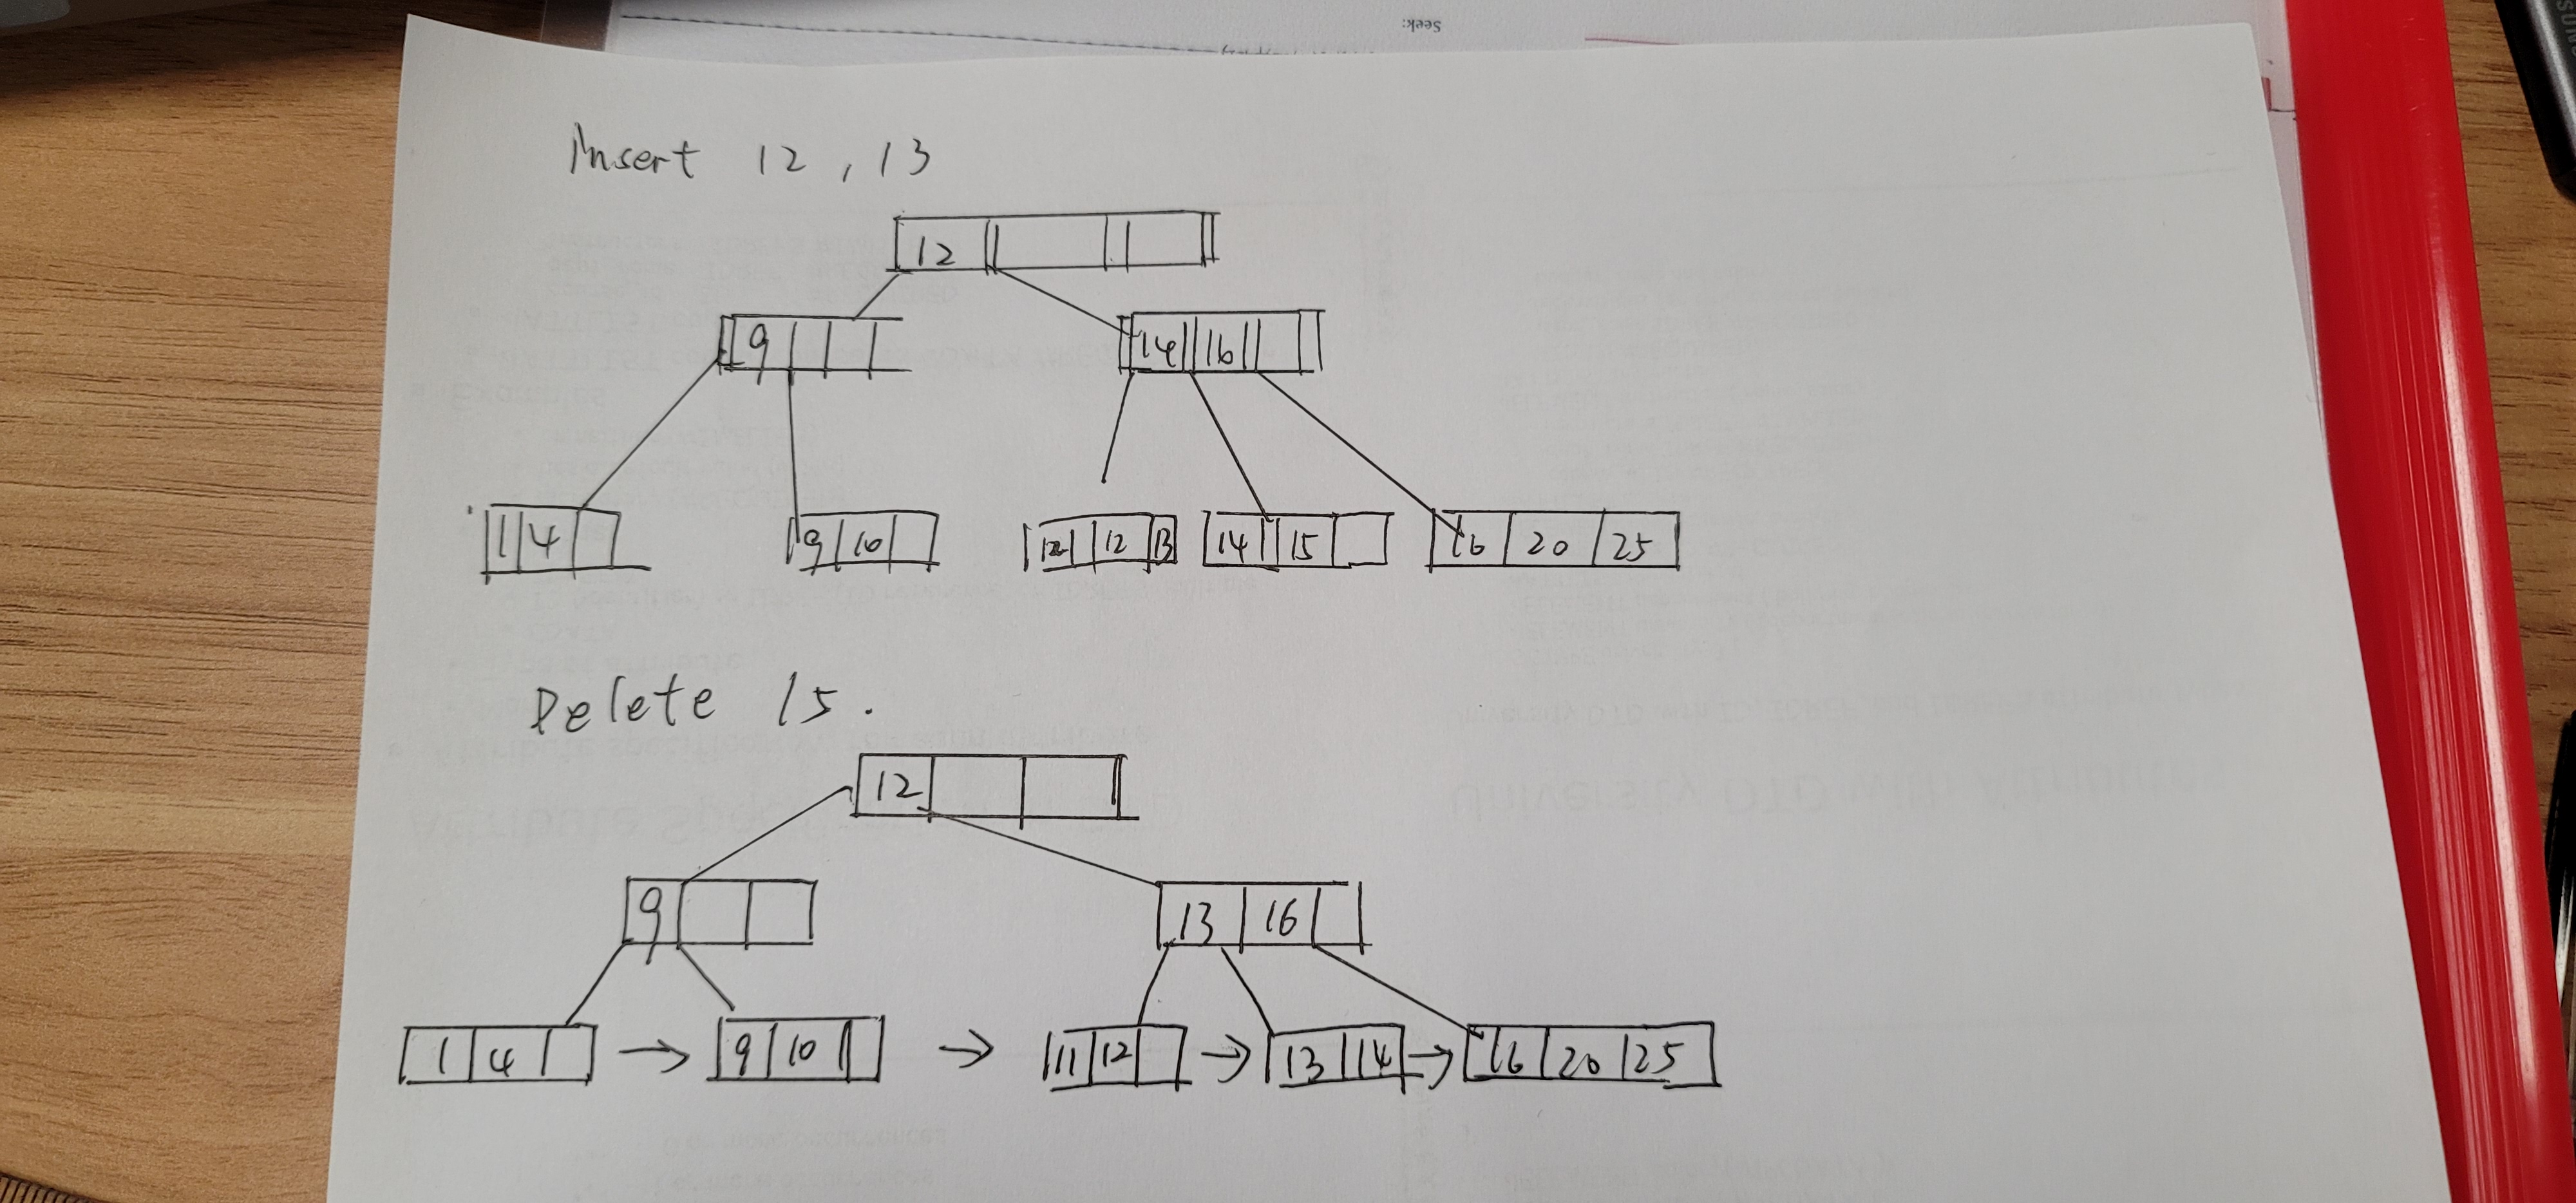 Insert 12, 13
12
9
14 16
1 4
9 10
12 12 13
14 15
16 20 25
Delete 15.
12
9
13 16
1 4 → 9 10 → 11 12 → 13 14 → 16 20 25
Seek: